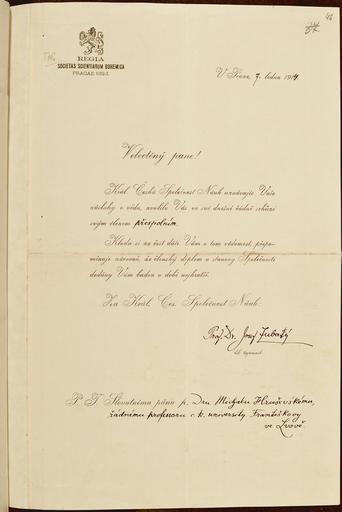 46
REGIA
SOCIETAS SCIENTIARUM BOHEMICA
PRAGAE
V Praze 7. ledna 1914
Velectěný pane!
Král. Česká Společnost Náuk uznávajíc Vaše
zásluhy o vědu, zvolila Vás ve své dnešní řádné schůzi
svým členem přespolním.
Kladu si za čest dáti Vám o tom vědomost, připo-
mínaje zároveň, že členský diplom a stanovy Společnosti
dodány Vám budou v době nejkratší.
Za Král. Čes. Společnost Náuk:
Prof. Dr. Josef Zubatý
hl. tajemník.
P. T. Slovutnému pánu p. Dru Michalu Hruševskému,
řádnému professoru c. k. university Františkovy
ve Lvově.